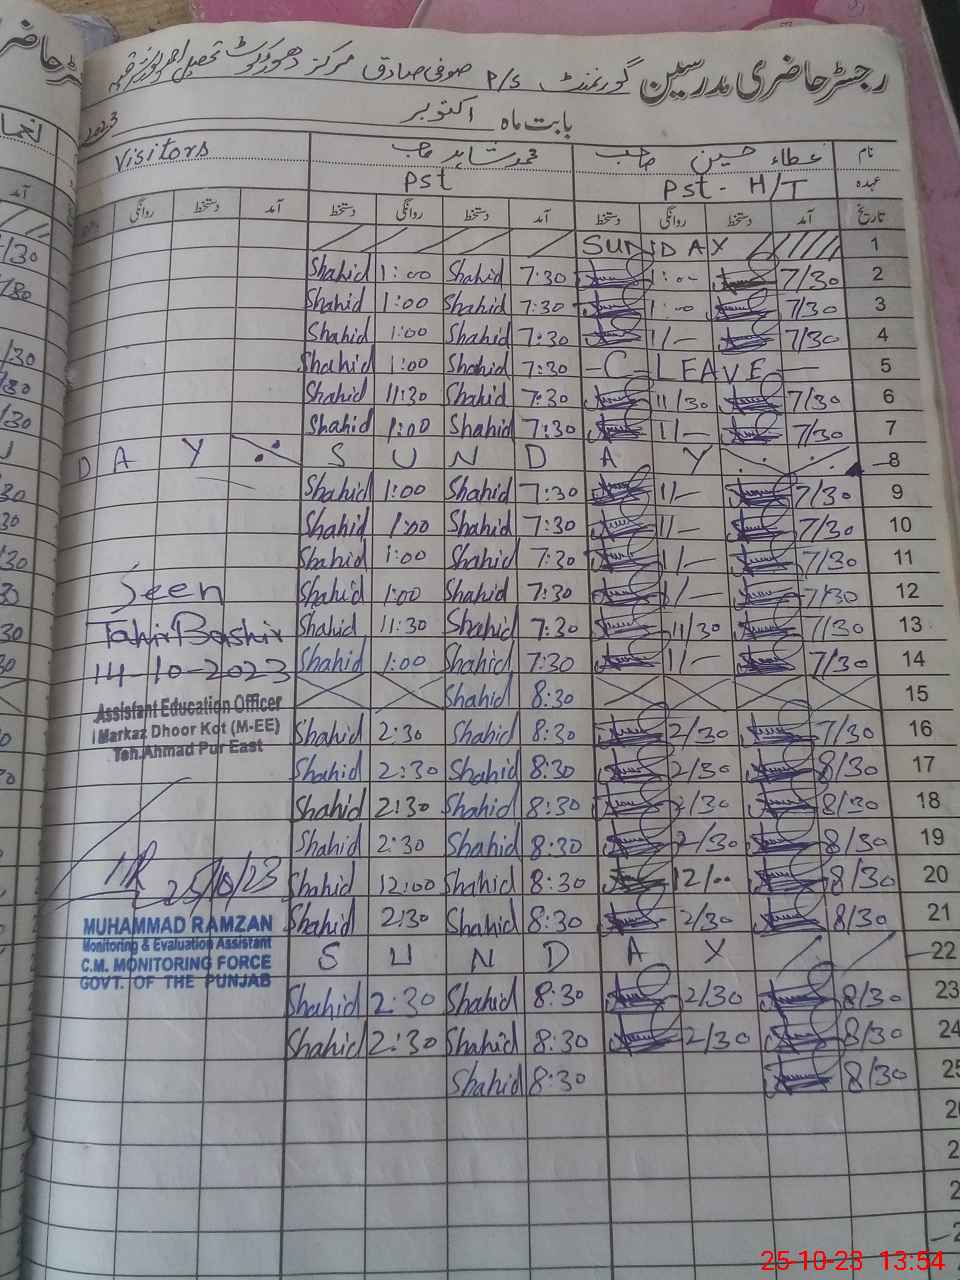 رجسٹر حاضری مدرسین گورنمنٹ P/S صوفی صادق مرکز دھورکوٹ تحصیل احمد پور شرقیہ
بابت ماہ اکتوبر 2023
نام عطاء حسین صاحب محمد شاہد صاحب Visitors
عہدہ Pst - H/T Pst
تاریخ آمد دستخط روانگی دستخط آمد دستخط روانگی دستخط آمد دستخط روانگی
1 SUNDAY
2 7/30 1:00 7:30 Shahid 1:00 Shahid
3 7/30 1:00 7:30 Shahid 1:00 Shahid
4 7/30 1/- 7:30 Shahid 1:00 Shahid
5 - C - LEAVE - 7:30 Shahid 1:00 Shahid
6 7/30 11/30 7:30 Shahid 11:30 Shahid
7 7/30 1/- 7:30 Shahid 1:00 Shahid
8 S U N D A Y D A Y
9 7/30 1/- 7:30 Shahid 1:00 Shahid
10 7/30 1/- 7:30 Shahid 1:00 Shahid
11 7/30 1/- 7:30 Shahid 1:00 Shahid
12 7/30 1/- 7:30 Shahid 1:00 Shahid
13 7/30 11/30 7:30 Shahid 11:30 Shahid
14 7/30 1/- 7:30 Shahid 1:00 Shahid
15 8:30 Shahid
16 7/30 2/30 8:30 Shahid 2:30 Shahid
17 8/30 2/30 8:30 Shahid 2:30 Shahid
18 8/30 2/30 8:30 Shahid 2:30 Shahid
19 8/30 2/30 8:30 Shahid 2:30 Shahid
20 8/30 12/00 8:30 Shahid 12:00 Shahid
21 8/30 2/30 8:30 Shahid 2:30 Shahid
22 S U N D A Y
23 8/30 2/30 8:30 Shahid 2:30 Shahid
24 8/30 2/30 8:30 Shahid 2:30 Shahid
25 8/30 8:30 Shahid
Seen
Tahir Bashir
14-10-2023
Assistant Education Officer
Markaz Dhoor Kot (M-EE)
Teh. Ahmad Pur East
25/10/23
MUHAMMAD RAMZAN
Monitoring & Evaluation Assistant
C.M. MONITORING FORCE
GOVT. OF THE PUNJAB
25-10-23 13:54